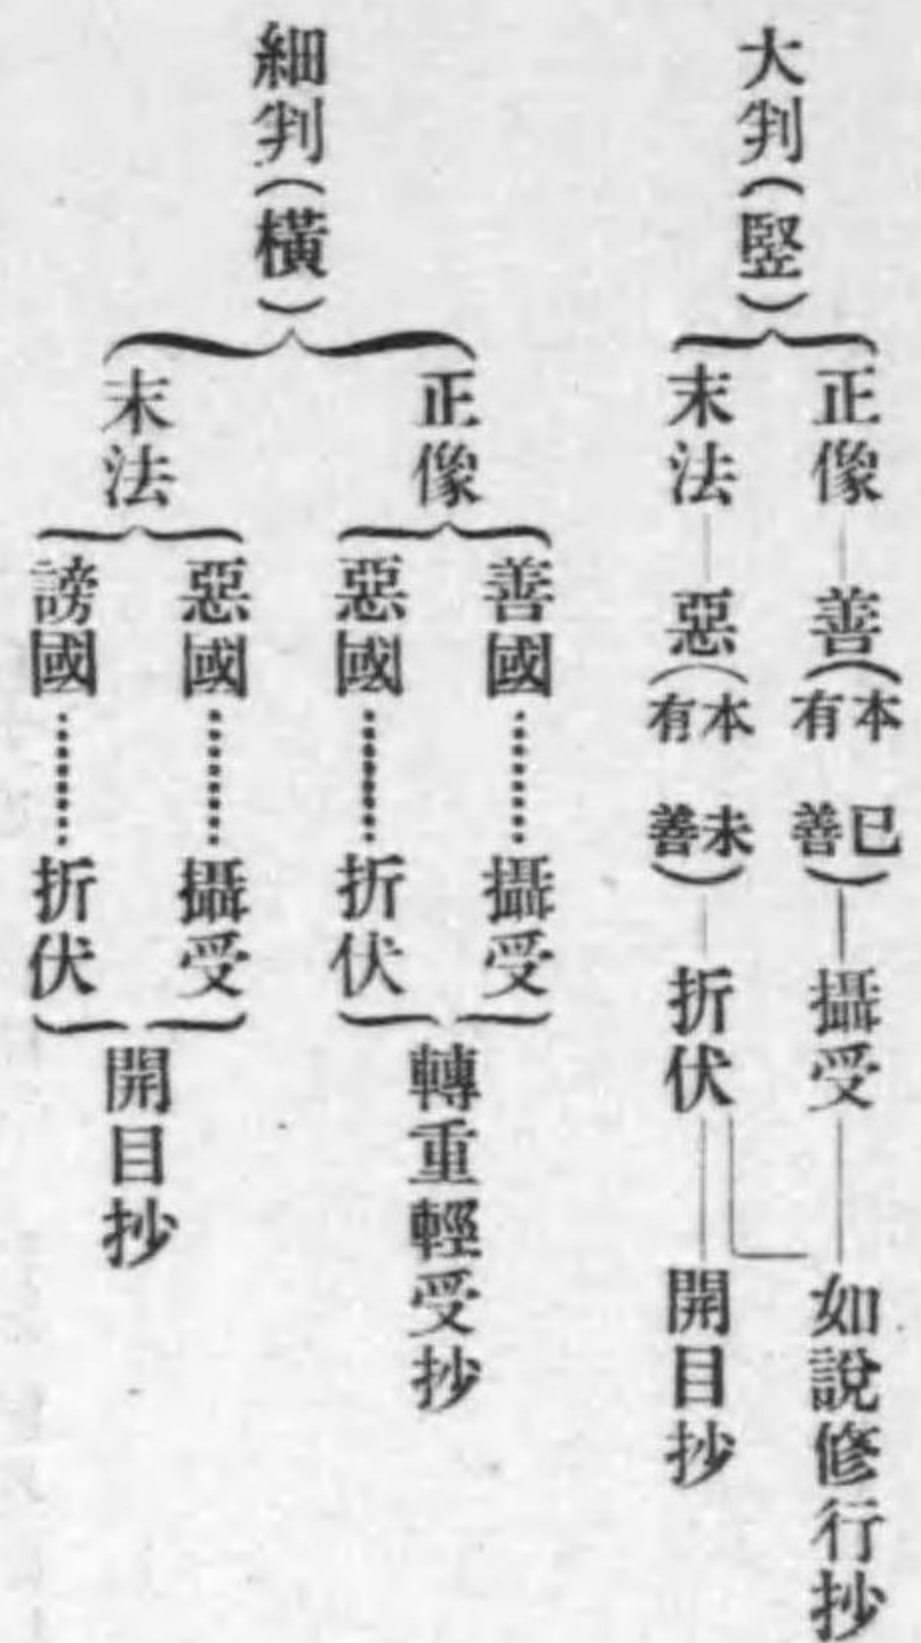 大判(竪)
正像―善(本有 已善)―攝受―如說修行抄
末法―惡(本有 未善)―折伏―開目抄
細判(橫)
正像
善國……攝受
惡國……折伏
轉重輕受抄
末法
惡國……攝受
謗國……折伏
開目抄